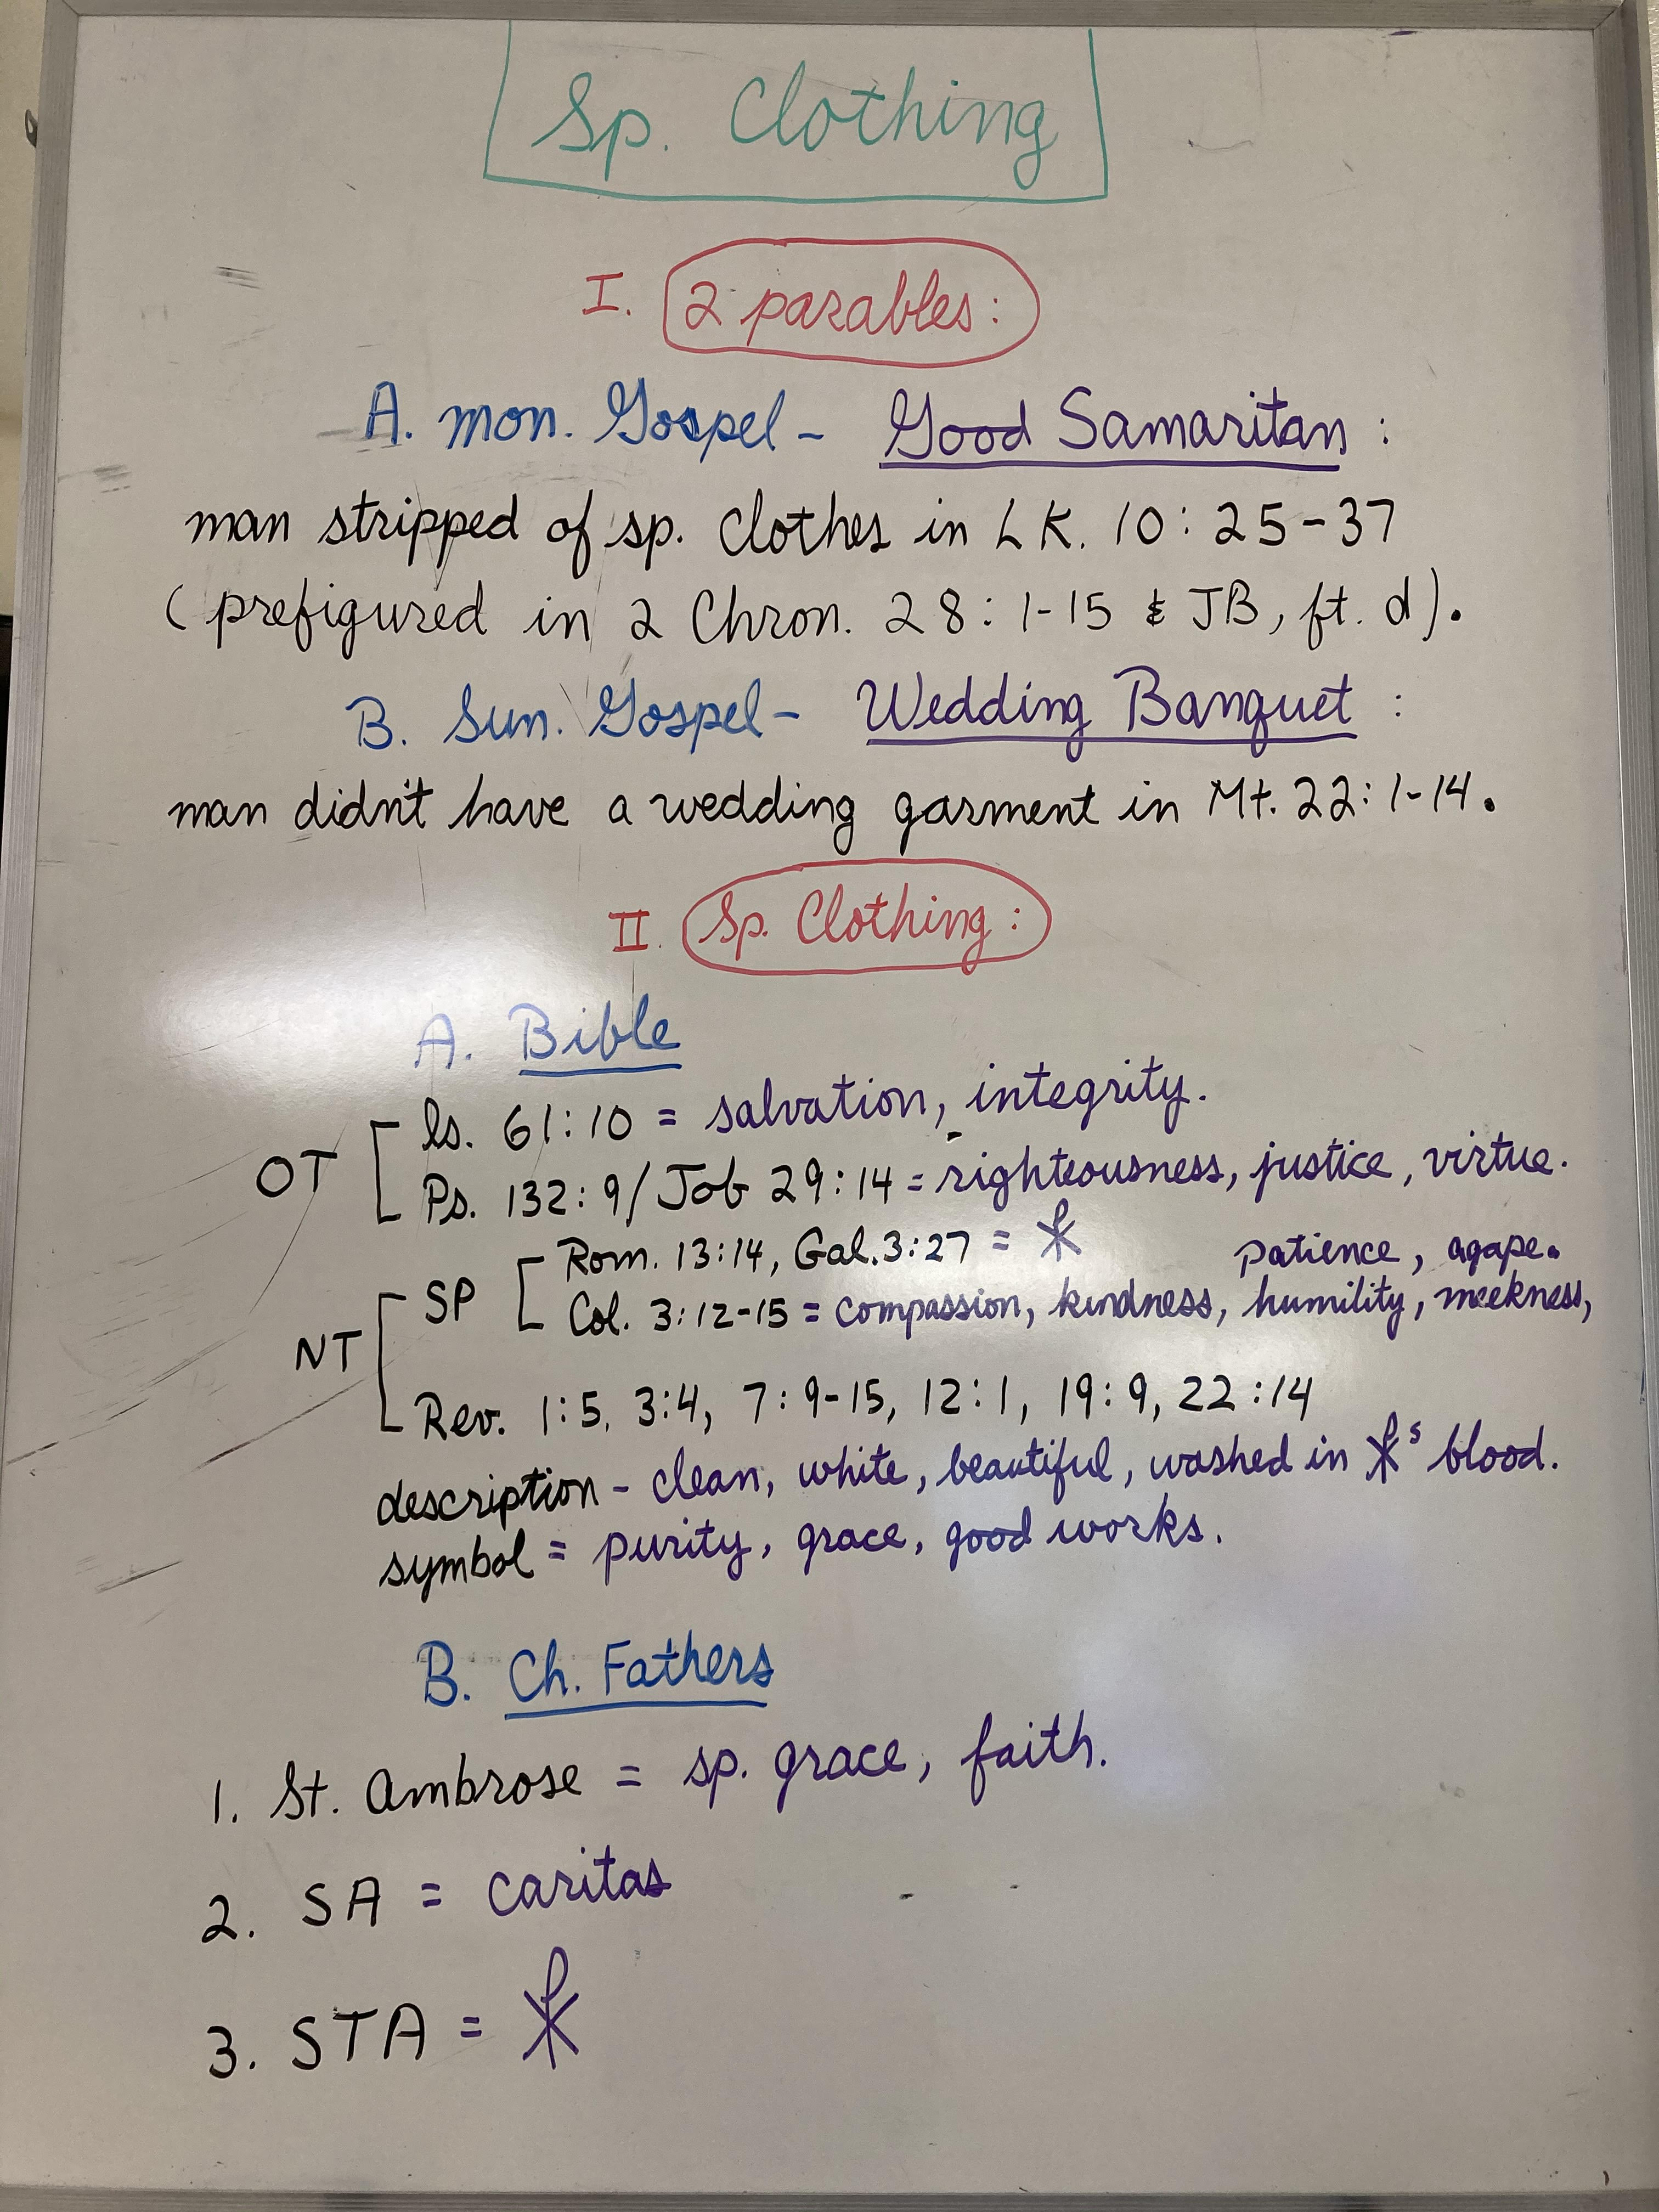 Sp. Clothing
I. 2 parables:
A. Mon. Gospel- Good Samaritan:
man stripped of sp. clothes in LK. 10:25-37
(prefigured in 2 Chron. 28:1-15 & JB, ft. d).
B. Sun. Gospel- Wedding Banquet:
man didn't have a wedding garment in Mt. 22:1-14.
II. Sp. Clothing:
A. Bible
OT
Is. 61:10 = salvation, integrity.
Ps. 132:9/Job 29:14 = righteousness, justice, virtue.
NT
SP
Rom. 13:14, Gal. 3:27 = ☧
Col. 3:12-15 = compassion, kindness, humility, meekness,
patience, agape.
Rev. 1:5, 3:4, 7:9-15, 12:1, 19:9, 22:14
description - clean, white, beautiful, washed in ☧s blood.
symbol = purity, grace, good works.
B. Ch. Fathers
1. St. Ambrose = sp. grace, faith.
2. SA = caritas
3. STA = ☧